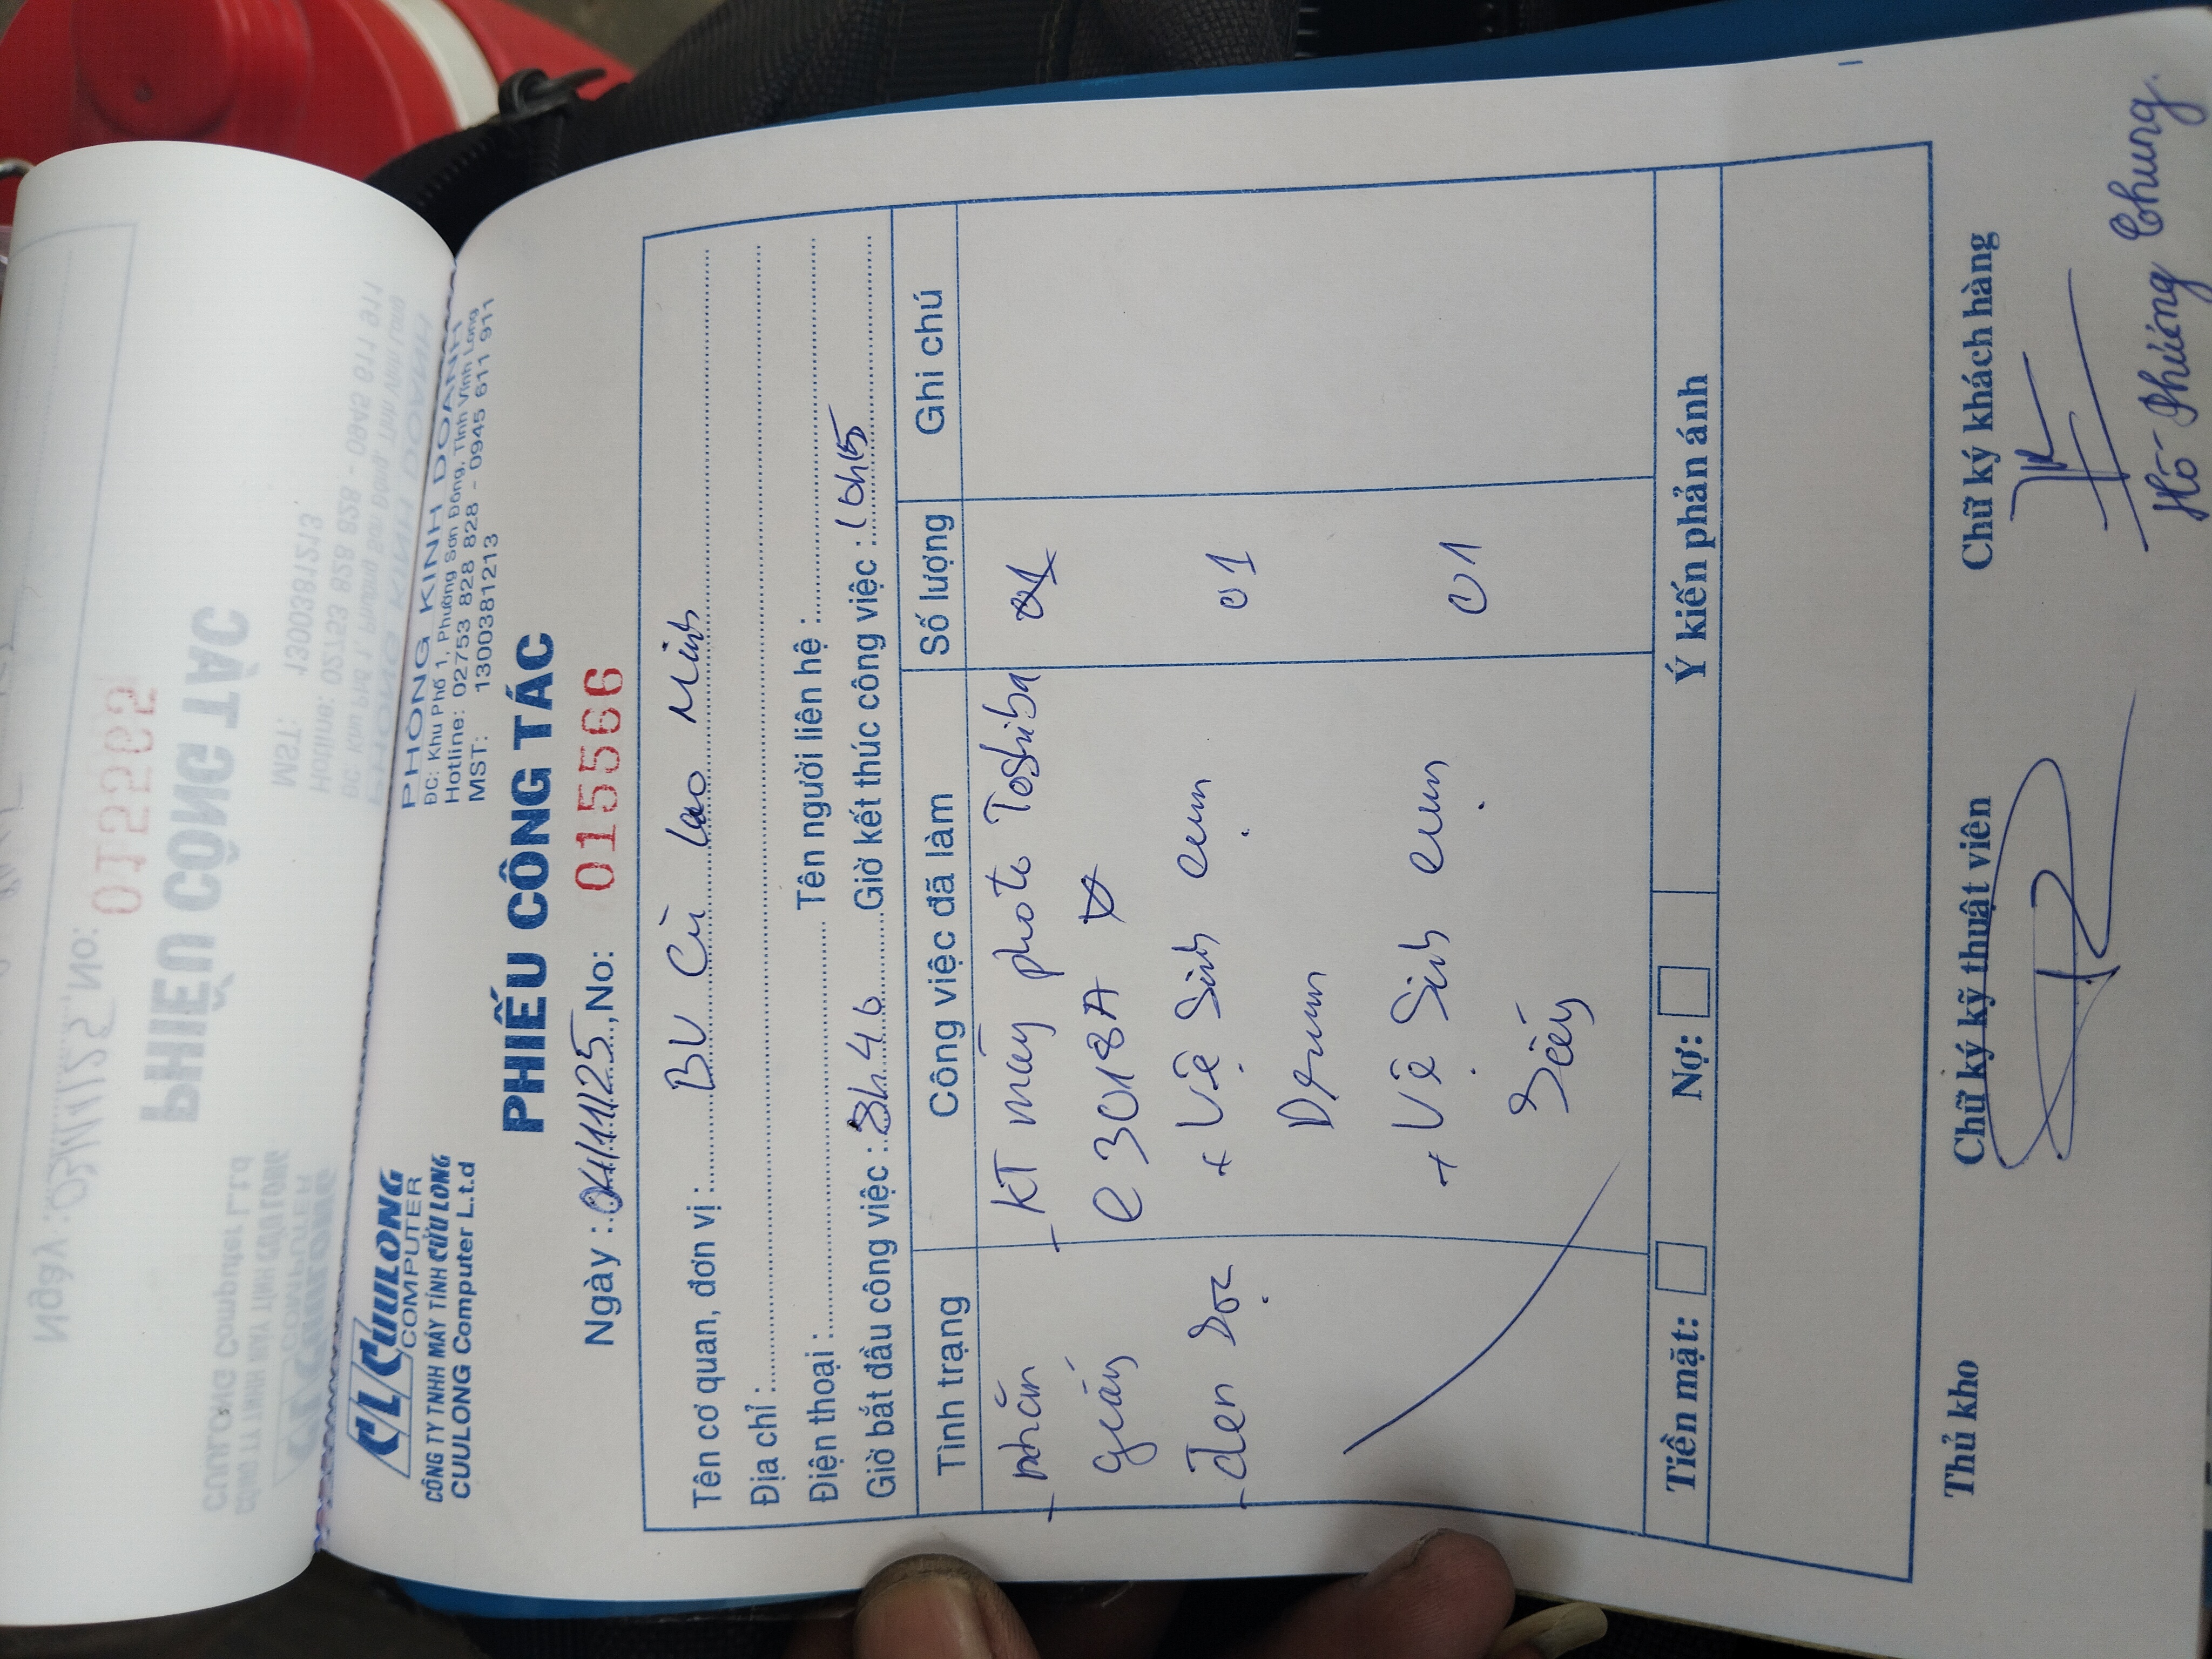 CL CUULONG
COMPUTER
CÔNG TY TNHH MÁY TÍNH CỬU LONG
CUULONG Computer L.t.d
PHÒNG KINH DOANH
ĐC: Khu Phố 1, Phường Sơn Đông, Tỉnh Vĩnh Long
Hotline: 02753 828 828 - 0945 611 911
MST: 1300381213
PHIẾU CÔNG TÁC
Ngày : 04/11/25, No: 015566
Tên cơ quan, đơn vị : BV Cù Lao Minh
Địa chỉ :
Điện thoại : Tên người liên hệ :
Giờ bắt đầu công việc : 8h46 Giờ kết thúc công việc : 10h15
Tình trạng Công việc đã làm Số lượng Ghi chú
- nhăn - KT máy photo Toshiba
giấy e 3018A
- đen sọc + Vệ Sinh cụm 01
Drum
+ Vệ Sinh cụm 01
Sấy
Tiền mặt: Nợ: Ý kiến phản ánh
Thủ kho Chữ ký kỹ thuật viên Chữ ký khách hàng
Hồ Phúng Chung